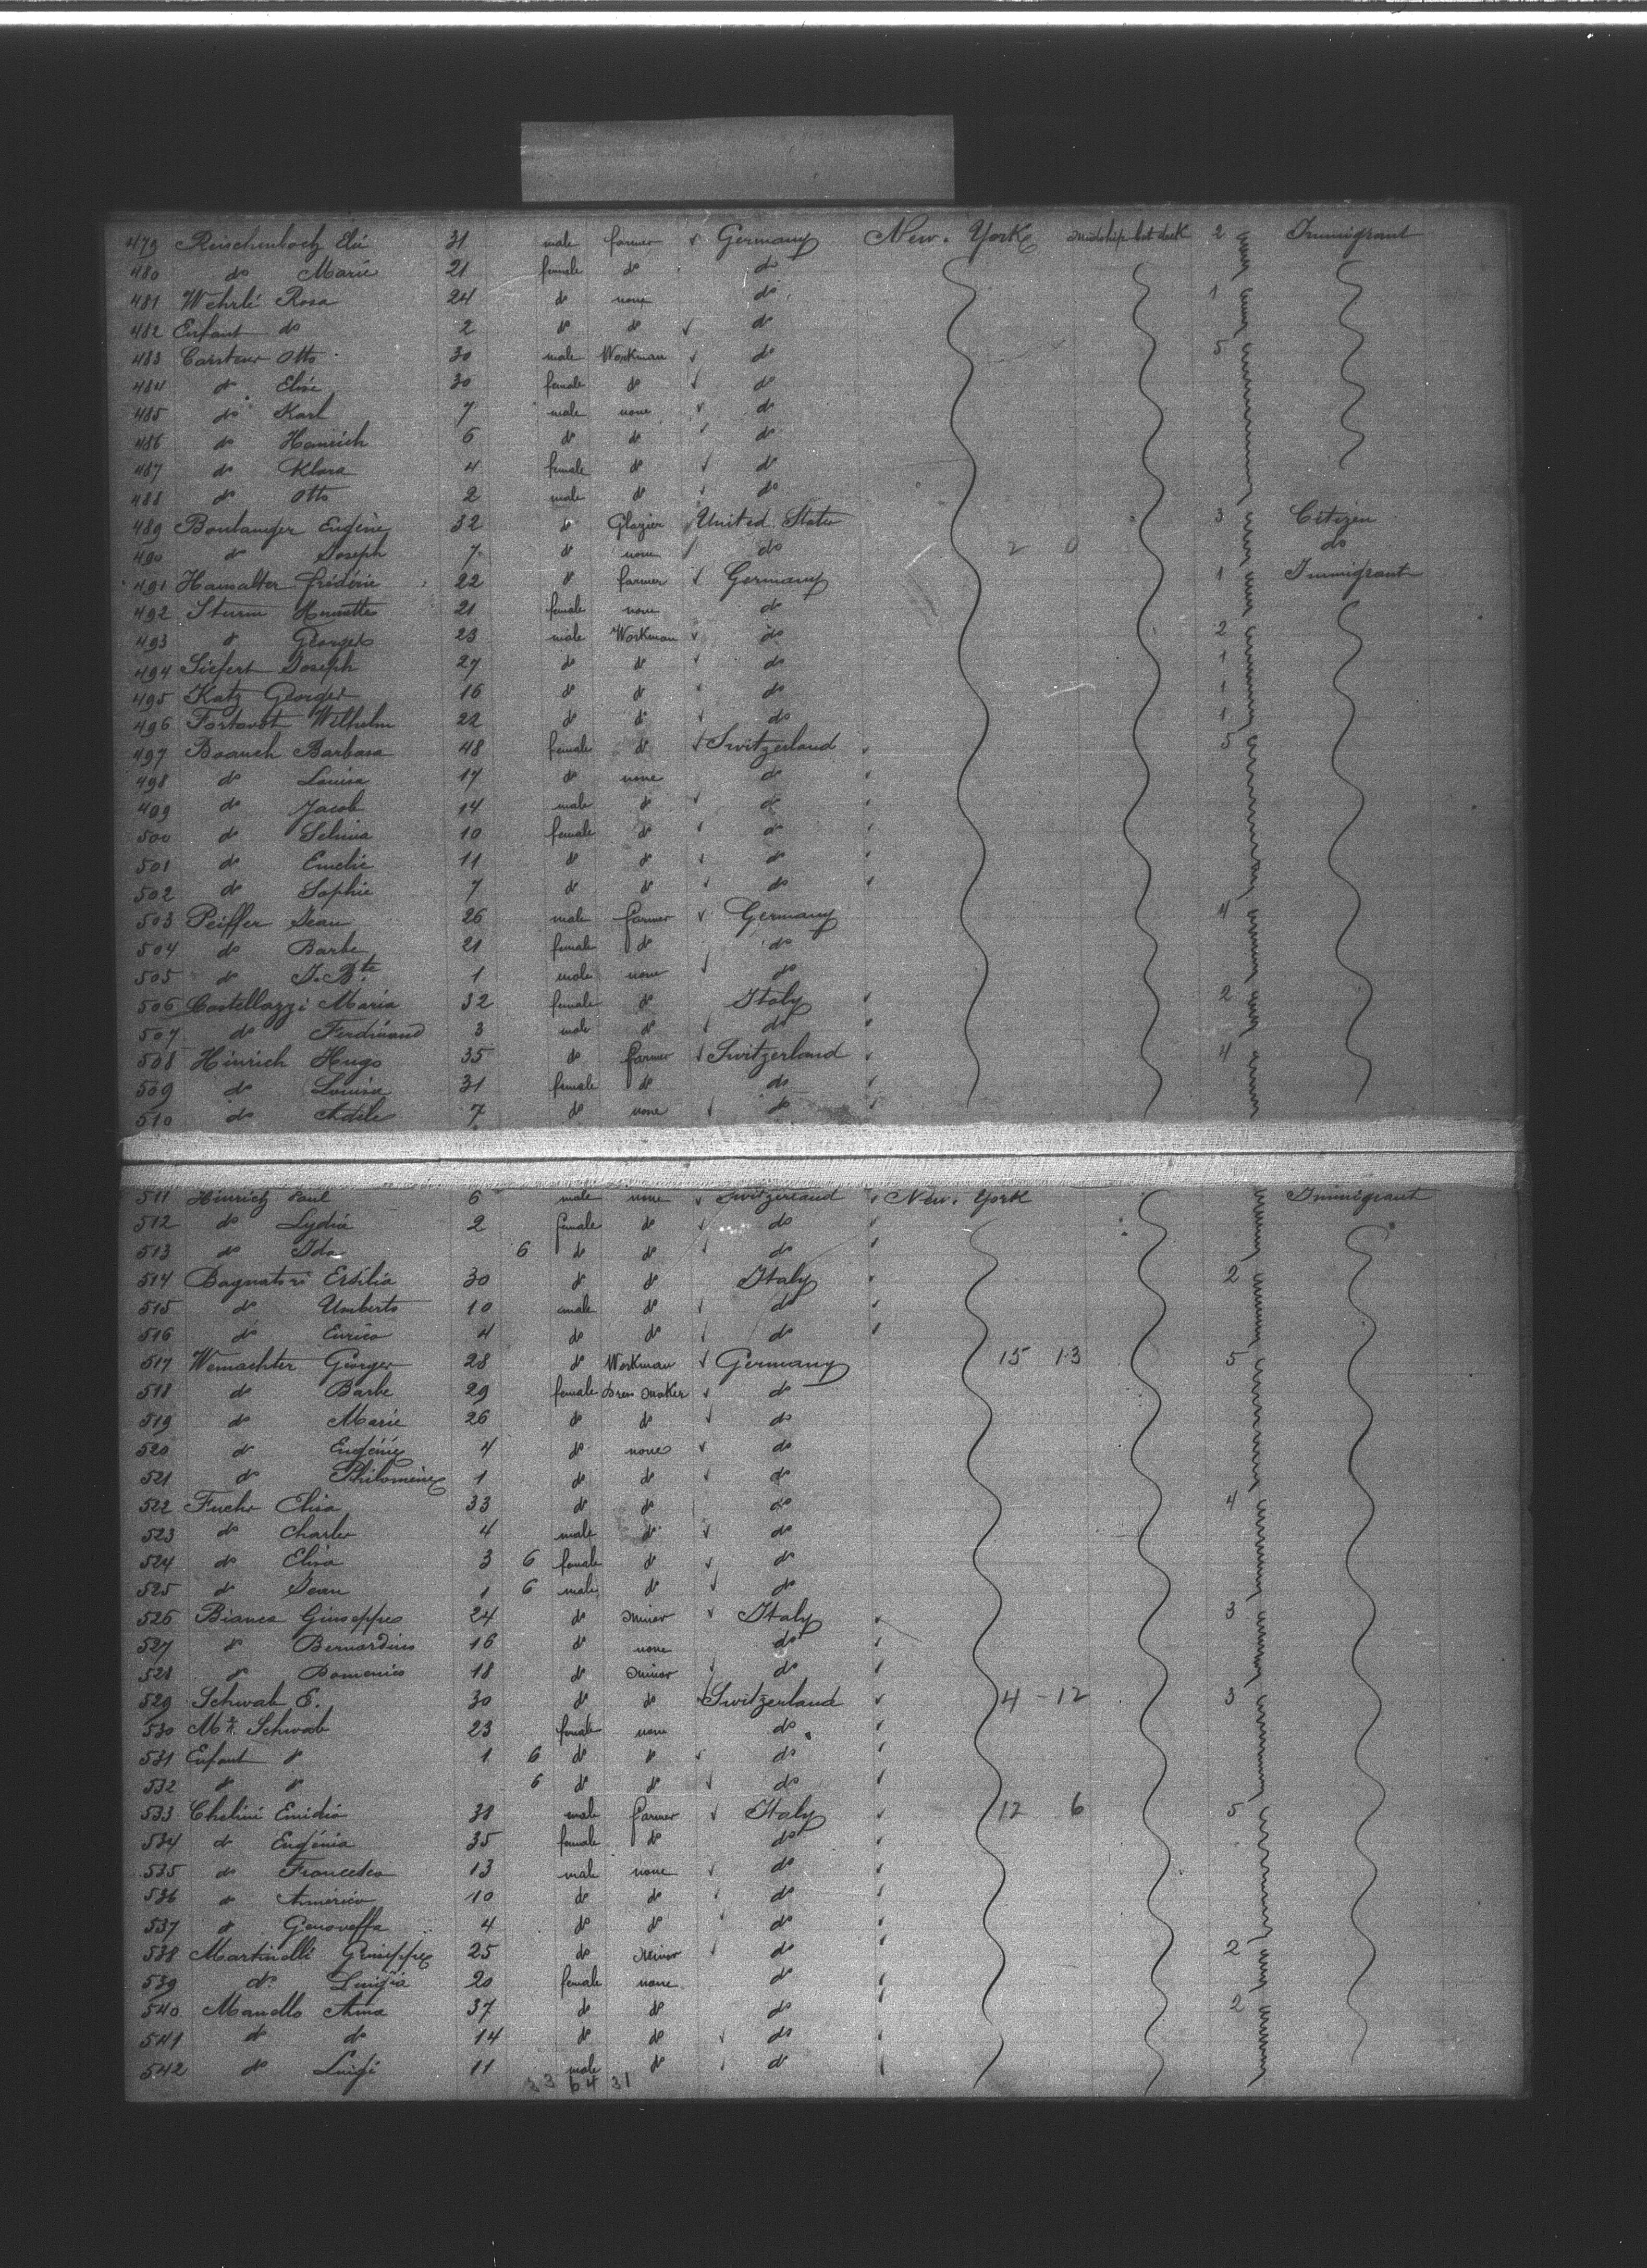 479 Reischenbach Elie 31 male farmer Germany New. York midship bet deck 2 Immigrant
480 do Marie 21 female do do
481 Wehrlé Rosa 24 do none do 1
482 Enfant do 2 do do do
483 Carstens Otto 30 male Workman do 5
484 do Elise 30 female do do
485 do Karl 7 male none do
486 do Heinrich 6 do do do
487 do Klara 4 female do do
488 do Otto 2 male do do
489 Boulanger Eugène 32 do Glazier United States 3 Citizen
490 do Joseph 7 do none do 2 0 do
491 Hausalter Frédéric 22 do farmer Germany 1 Immigrant
492 Sturm Annette 21 female none do
493 do Georges 23 male Workman do 2
494 Siefert Joseph 27 do do do 1
495 Katz Georges 16 do do do 1
496 Wilhelm 22 do do do 1
497 Baauch Barbara 48 female do Switzerland 5
498 do Louisa 17 do none do
499 do Jacob 14 male do do
500 do Selina 10 female do do
501 do Emelie 11 do do do
502 do Sophie 7 do do do
503 Peiffer Jean 26 male farmer Germany 4
504 do Barbe 21 female do do
505 do J. Bte 1 male none do
506 Castellazzi Maria 32 female do Italy 2
507 do Ferdinand 3 male do do
508 Hinrich Hugo 35 do farmer Switzerland 4
509 do Louisa 31 female do do
510 do Adèle 7 do none do
511 Hinrich Paul 6 male none Switzerland New. York Immigrant
512 do Lydia 2 female do do
513 do Ida 6 do do do
514 Bagnatori Ersilia 30 do do Italy 2
515 do Umberto 10 male do do
516 do Enrico 4 do do do
517 Wemachter Georges 28 do Workman Germany 15 13 5
518 do Barbe 29 female Dress maker do
519 do Marie 26 do do do
520 do Eugénie 4 do none do
521 do Philomène 1 do do do
522 Fuchs Elisa 33 do do do 4
523 do Charles 4 male do do
524 do Elisa 3 6 female do do
525 do Jean 1 6 male do do
526 Bianca Giuseppe 24 do miner Italy 3
527 do Bernardino 16 do none do
528 do Domenico 18 do miner do
529 Schwab E. 30 do do Switzerland 4 - 12 3
530 Me. Schwab 23 female none do
531 Enfant do 1 6 do do do
532 do do 6 do do do
533 Chelini Emidio 38 male farmer Italy 12 6 5
534 do Eugénia 35 female do do
535 do Francesco 13 male none do
536 do Américo 10 do do do
537 do Genoveffa 4 do do do
538 Martinelli Giuseppe 25 do miner do 2
539 do Luigia 20 female none do
540 Manello Anna 37 do do do 2
541 do do 14 do do do
542 do Luigi 11 male do do
33 64 31